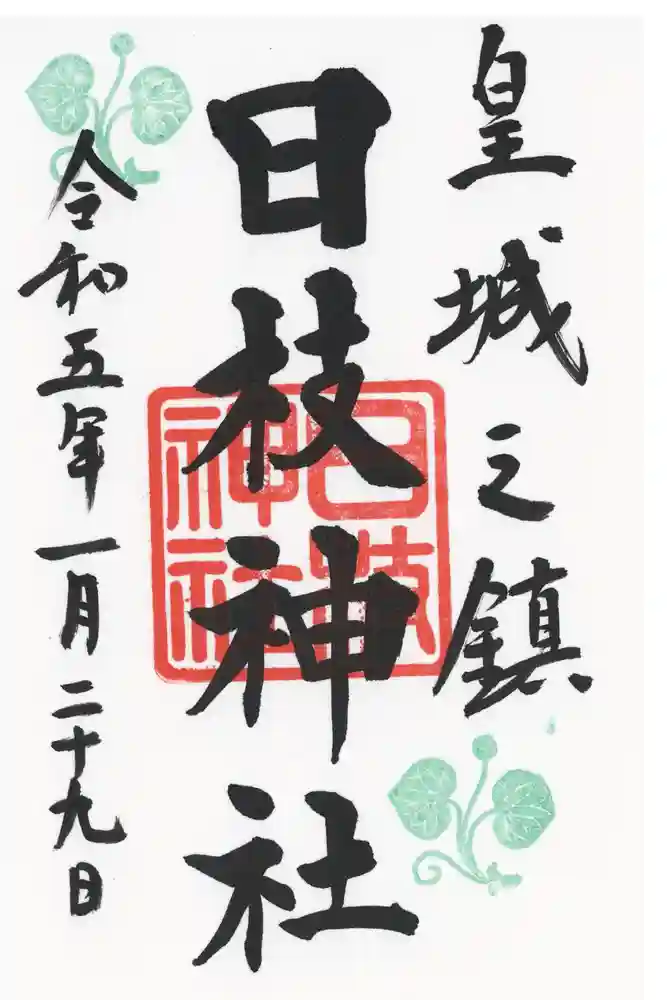 皇城之鎮
日枝神社
令和五年一月二十九日
日枝
神社